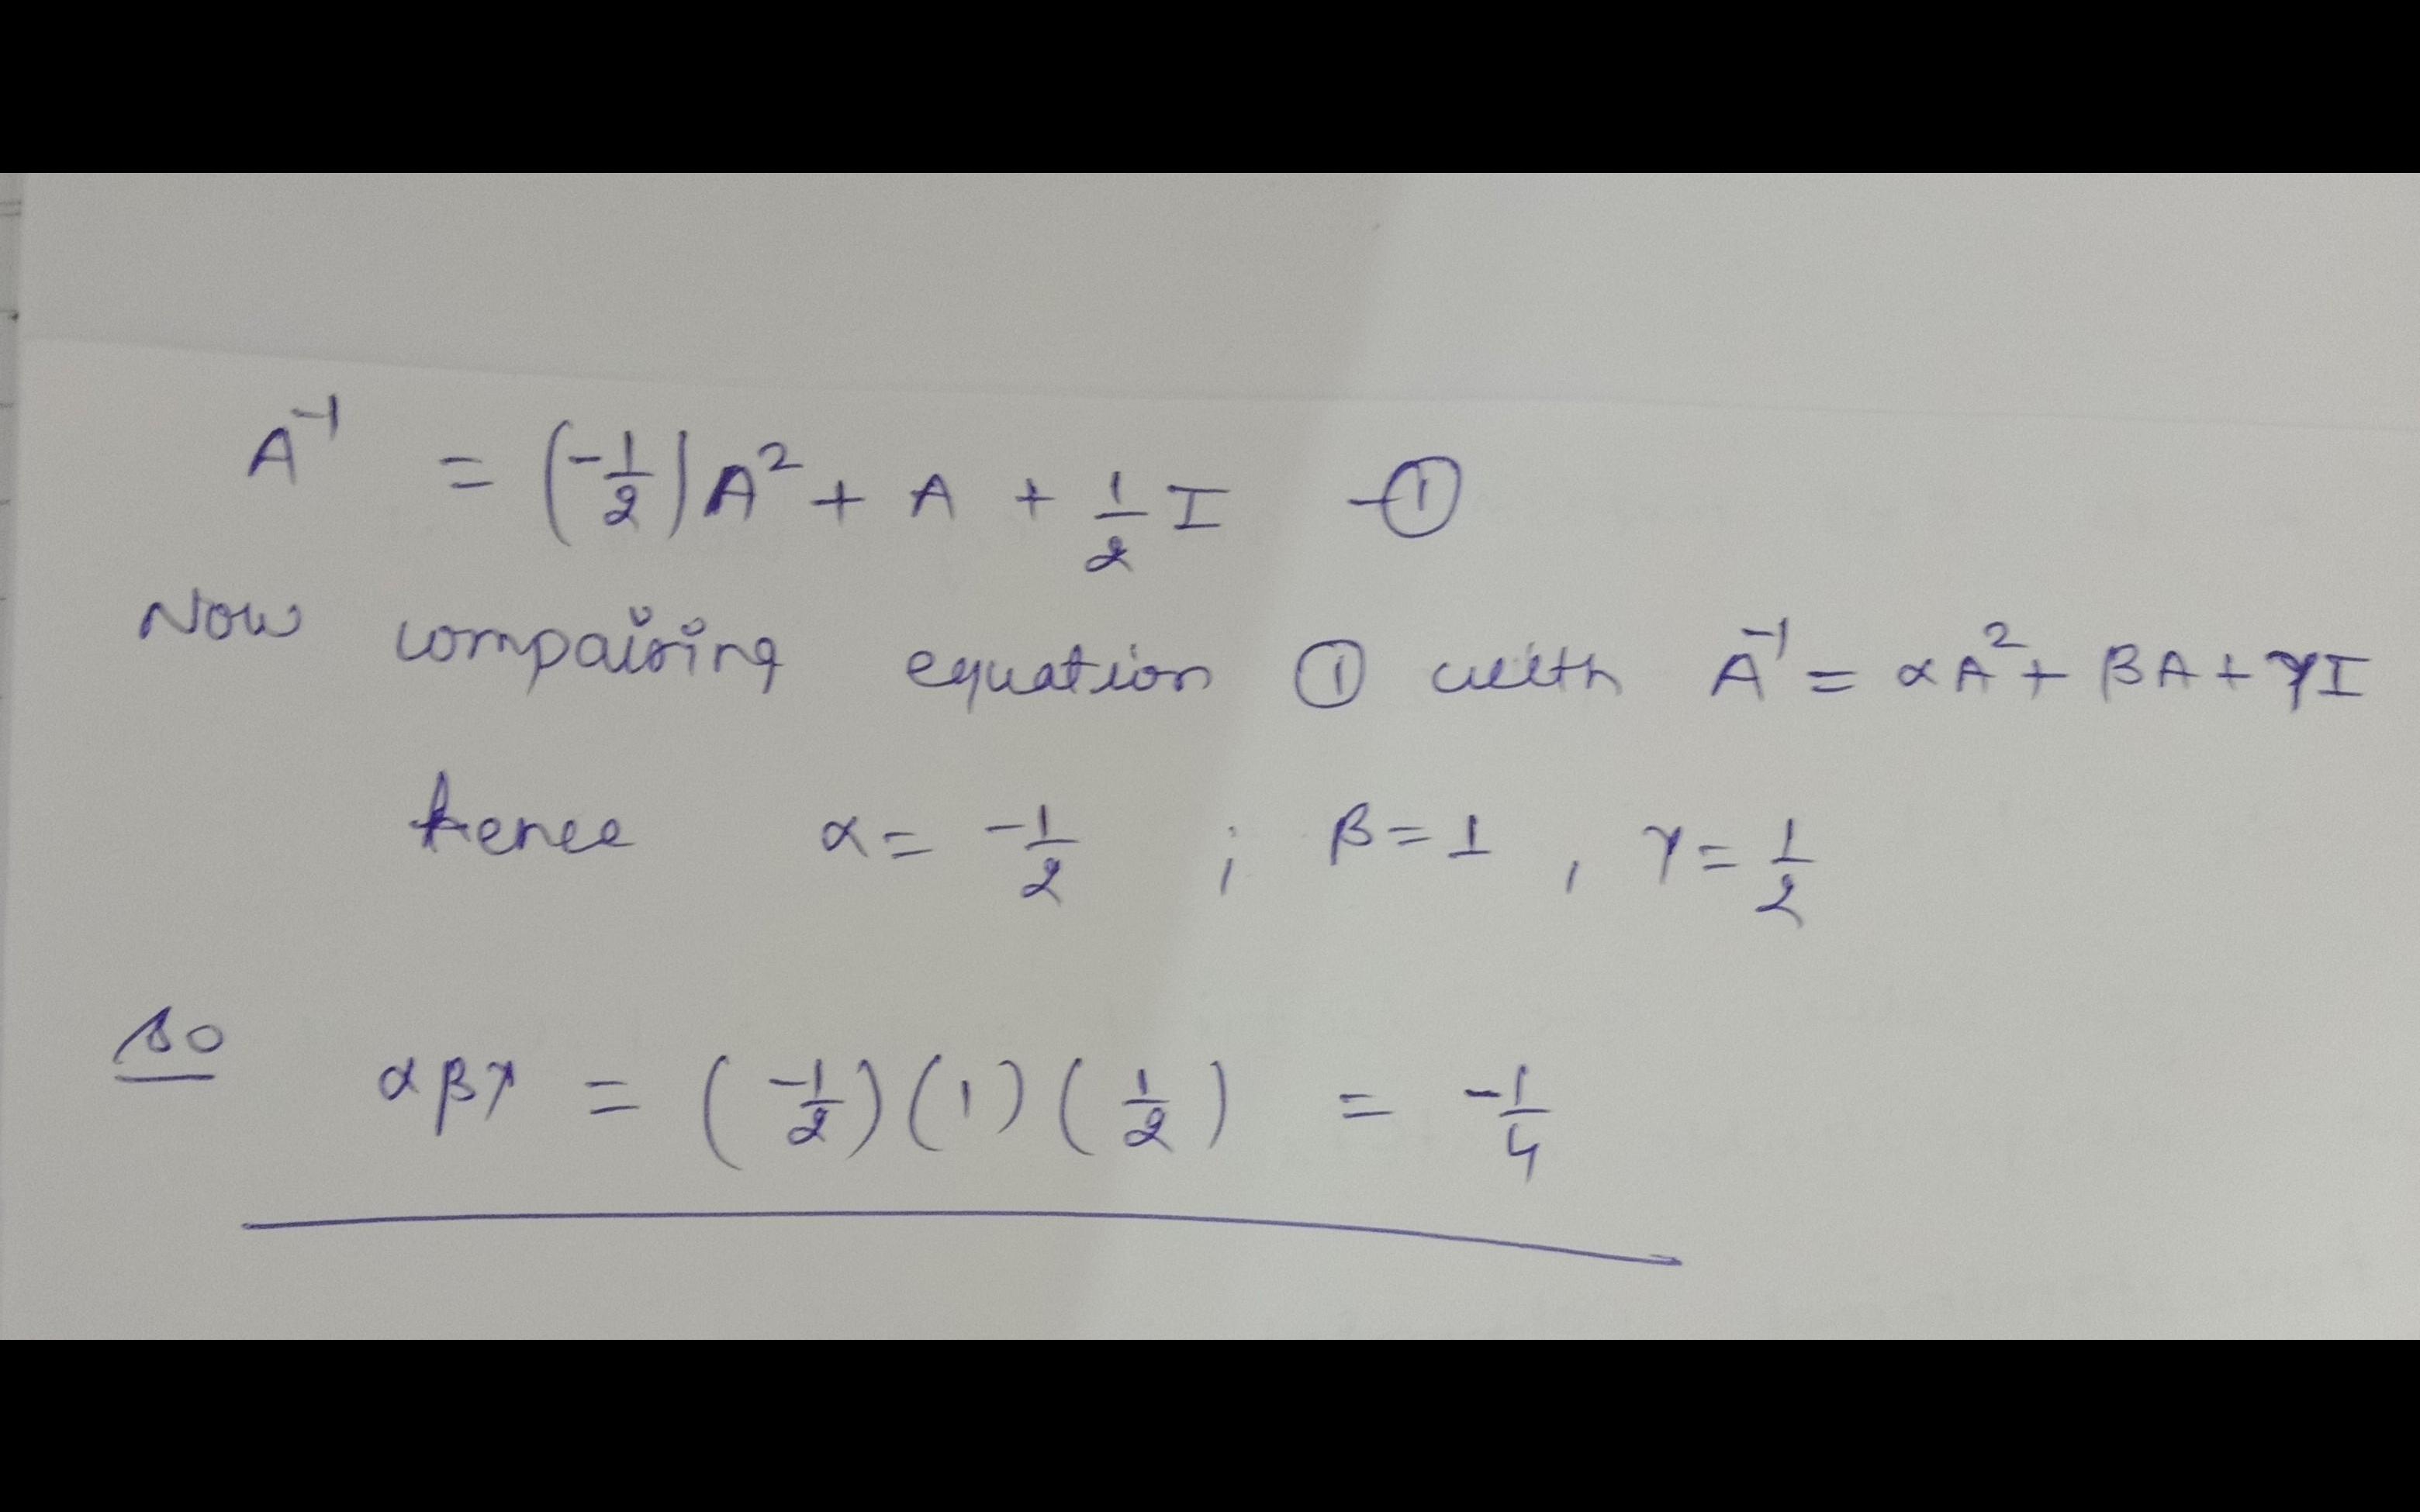 A⁻¹ = (-1/2)A² + A + 1/2 I -①
Now compairing equation ① with A⁻¹ = αA² + βA + γI
hence α = -1/2 ; β = 1 , γ = 1/2
so αβγ = (-1/2)(1)(1/2) = -1/4